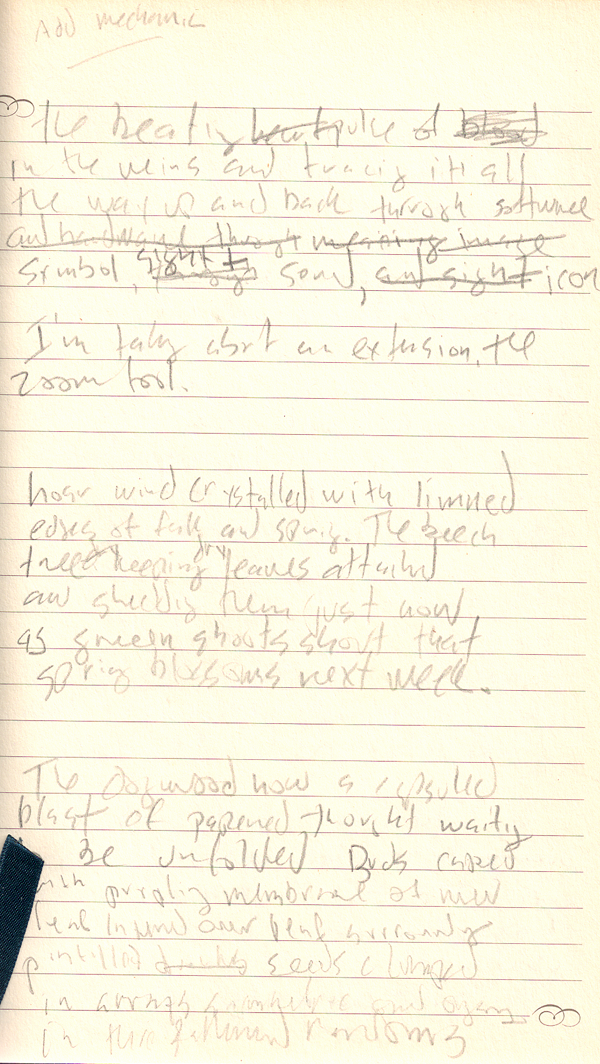 Add mechanic
The beating heart pulse of blood
in the veins and tracing it all
the way up and back through software
and hardware through meaning image
symbol, sight & through sound, and sight icon
I'm talking about an extension, the
zoom tool.
hoar wind crystalled with limned
edges of fall and spring. The beech
tree keeping dry leaves attached
and shedding them just now
as green shoots shout that
spring blossoms next week.
The dogwood now a capsuled
blast of papered thought waiting
be unfolded Buds cased
with purpling membrane of new
leaf leaf surrounding
seeds clumped
in arrays and
in the patterned randoms